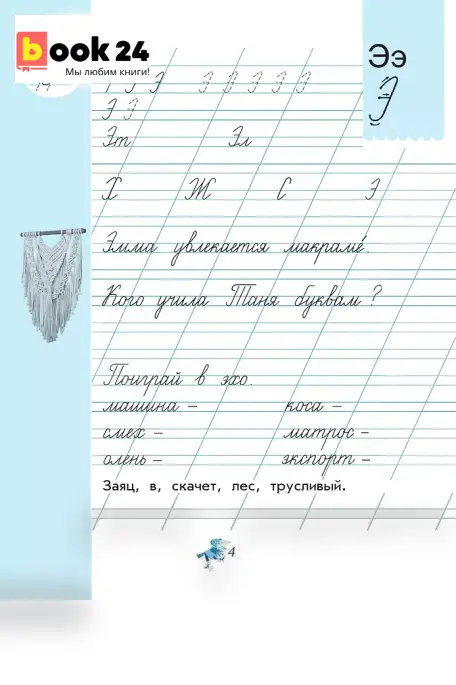 book 24
Мы любим книги!
Ээ
Э
Э Э Э Э Э Э Э Э
Э Э
Эт Эл
Х Ж С Э
Эмма увлекается макраме́.
Кого учила Таня буквам?
Поиграй в эхо.
машина – коса –
смех – матрос –
олень – экспорт –
Заяц, в, скачет, лес, трусливый.
4